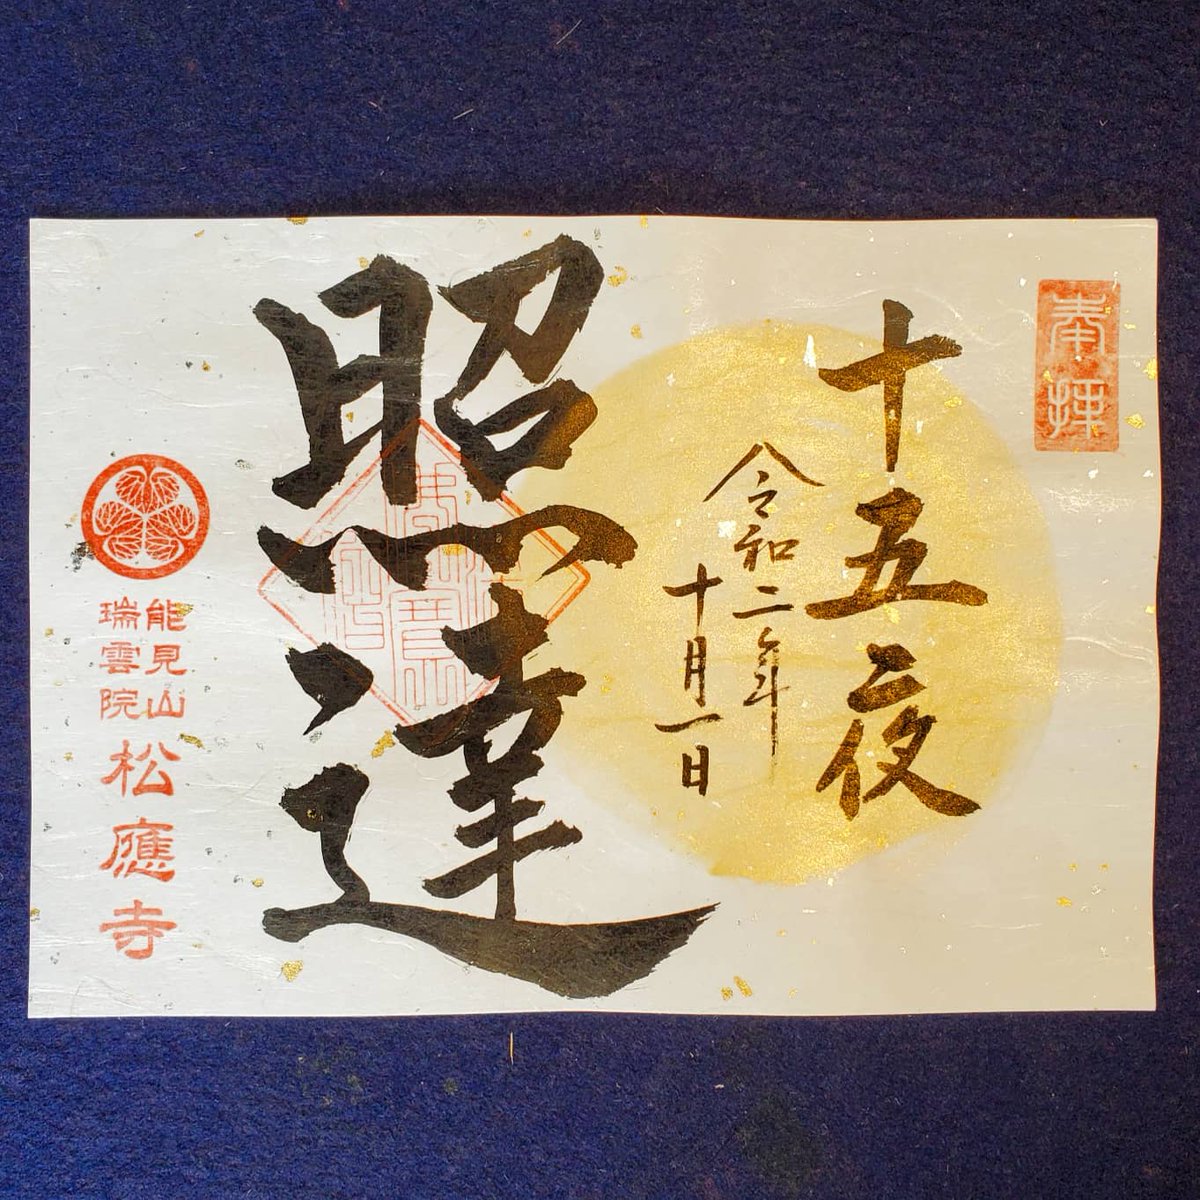 奉拝
十五夜
令和二年
十月一日
照達
能見山
瑞雲院
松應寺